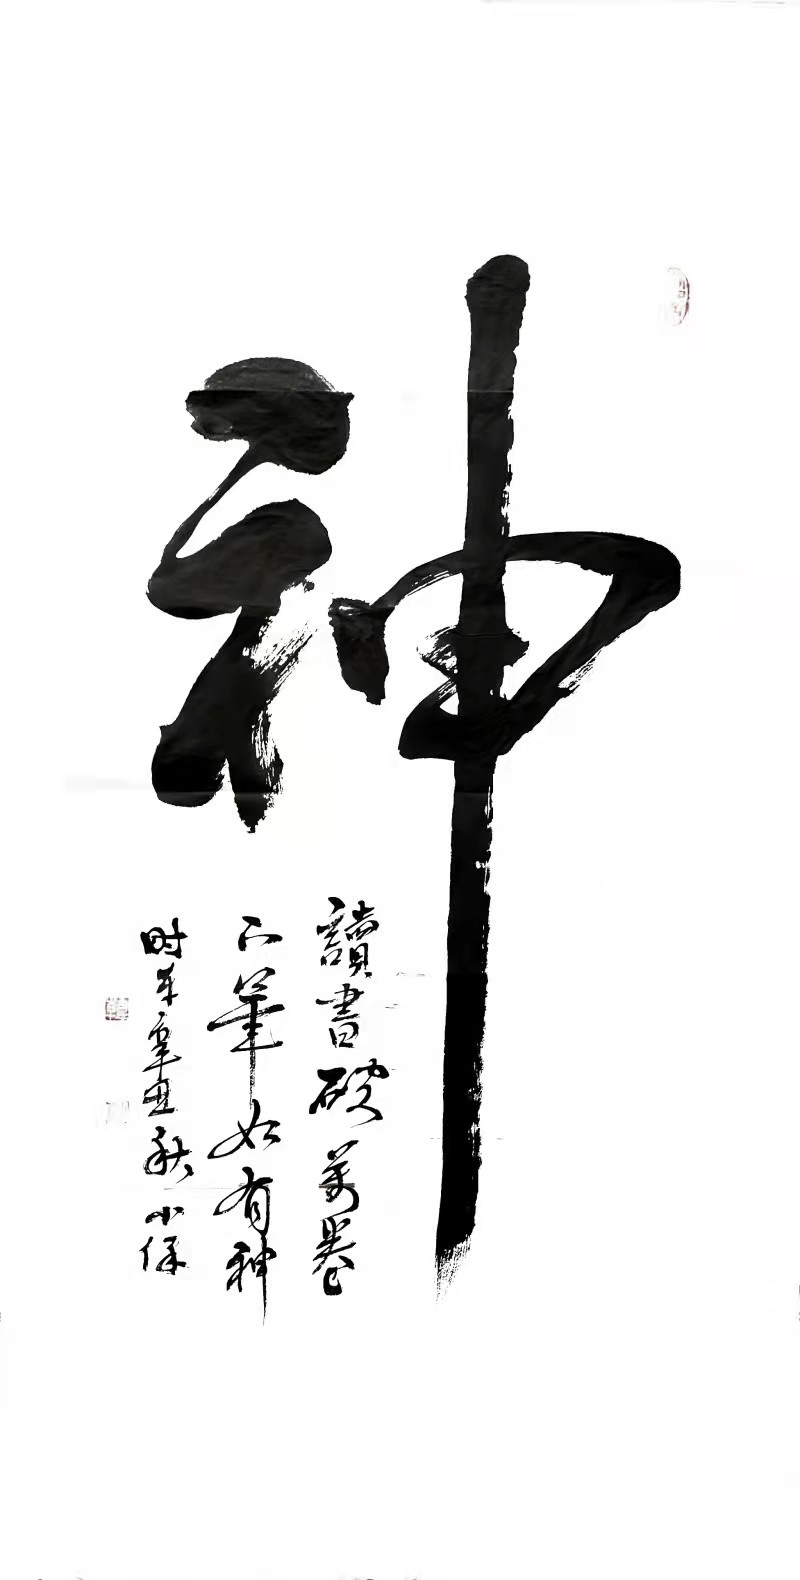 神
讀書破萬卷
下筆如有神
时年辛丑秋小保